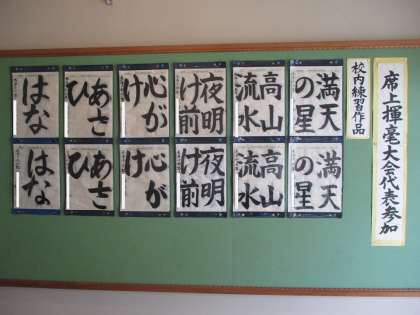 席上揮毫大会代表参加
校内練習作品
満天
の星
高山
流水
夜明
け前
心が
け
あさ
ひ
はな
満天
の星
高山
流水
夜明
け前
心が
け
あさ
ひ
はな